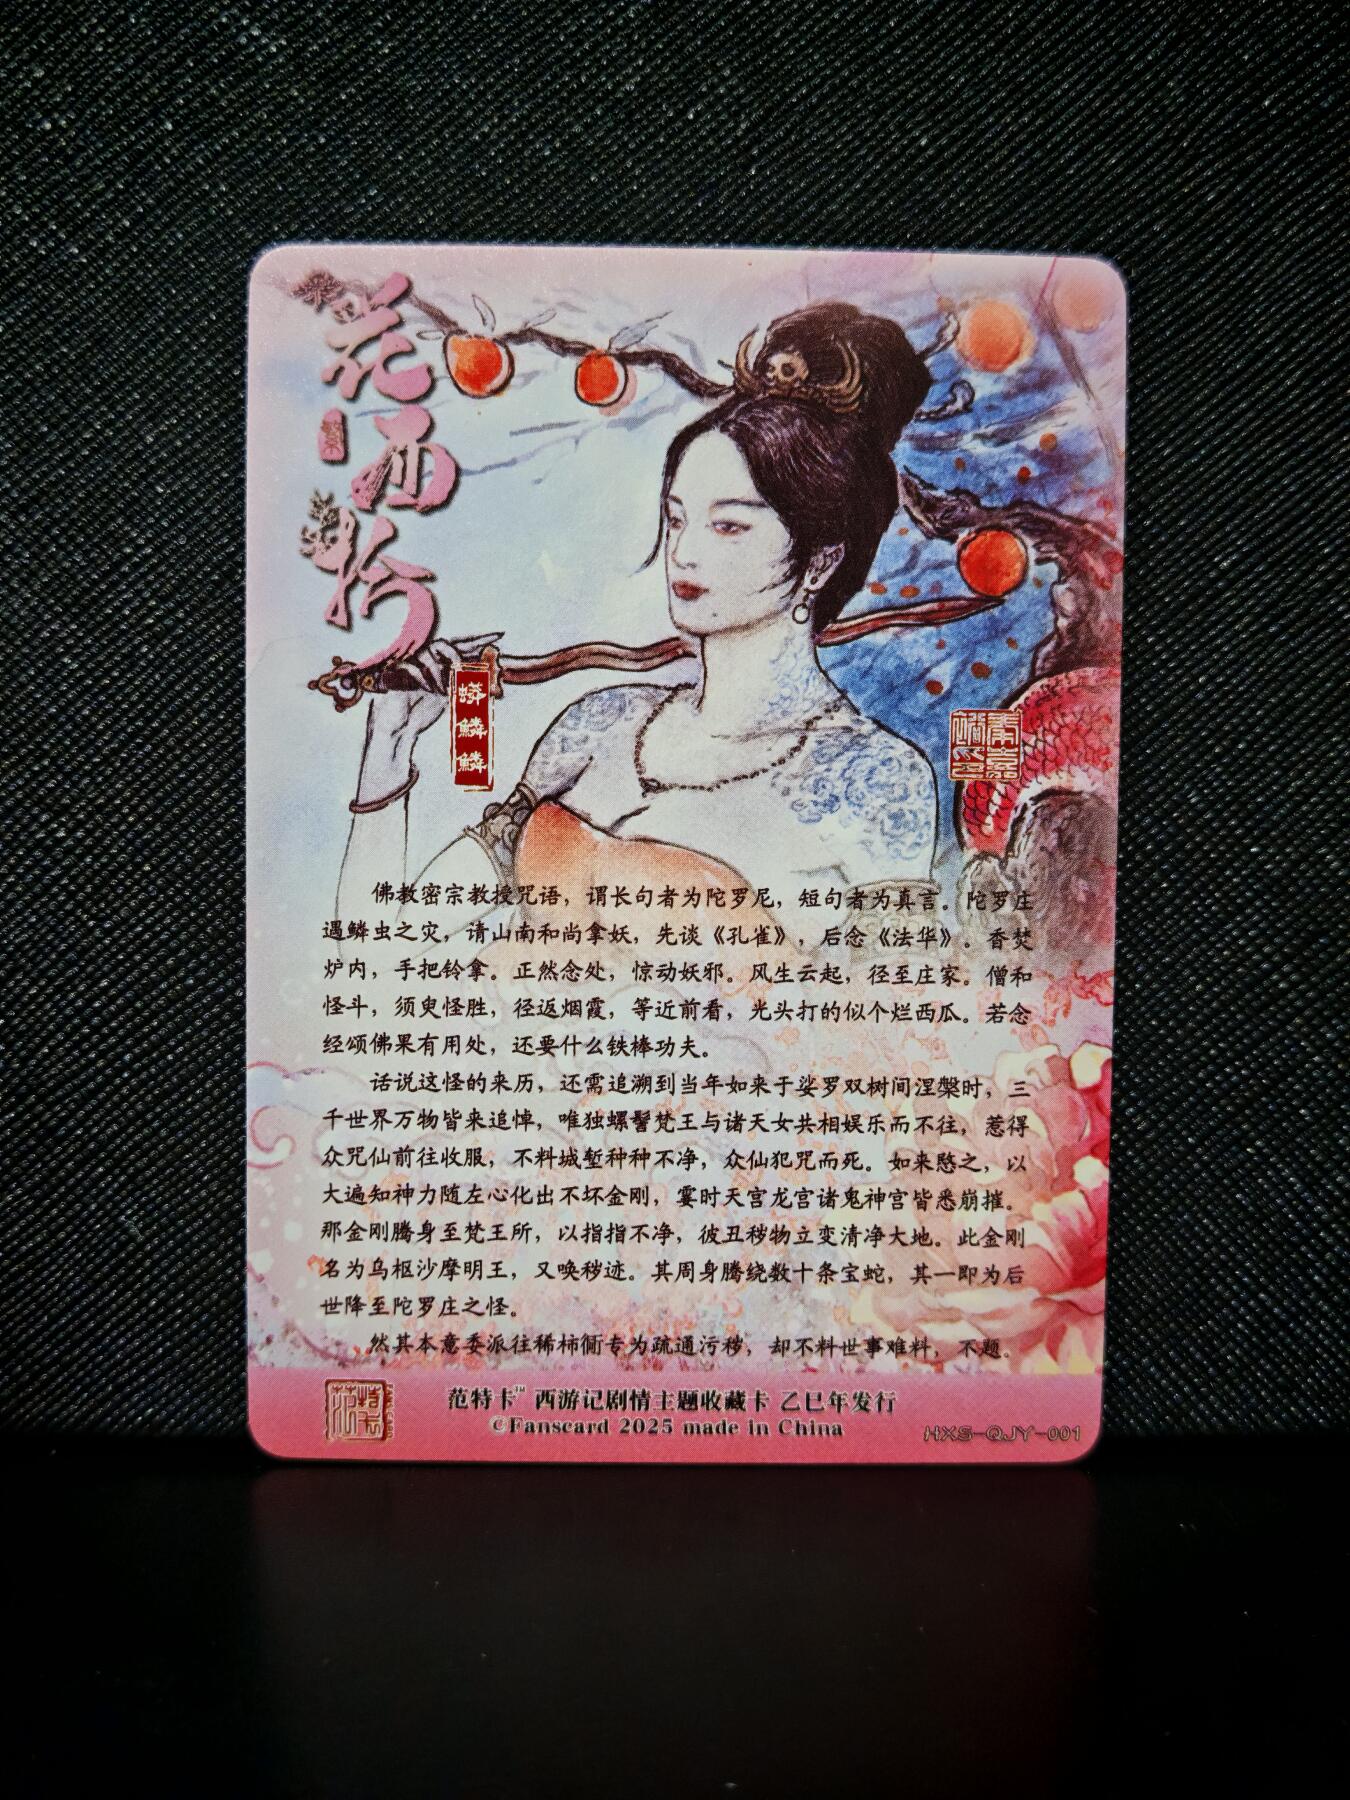 花西拾
蟒鳞鳞
佛教密宗教授咒语，谓长句者为陀罗尼，短句者为真言。陀罗庄
遇鳞虫之灾，请山南和尚拿妖，先谈《孔雀》，后念《法华》。香焚
炉内，手把铃拿。正然念处，惊动妖邪。风生云起，径至庄家。僧和
怪斗，须臾怪胜，径返烟霞，等近前看，光头打的似个烂西瓜。若念
经颂佛果有用处，还要什么铁棒功夫。
话说这怪的来历，还需追溯到当年如来于娑罗双树间涅槃时，三
千世界万物皆来追悼，唯独螺髻梵王与诸天女共相娱乐而不往，惹得
众咒仙前往收服，不料城堑种种不净，众仙犯咒而死。如来愍之，以
大遍知神力随左心化出不坏金刚，霎时天宫龙宫诸鬼神宫皆悉崩摧。
那金刚腾身至梵王所，以指指不净，彼丑秽物立变清净大地。此金刚
名为乌枢沙摩明王，又唤秽迹。其周身腾绕数十条宝蛇，其一即为后
世降至陀罗庄之怪。
然其本意委派往稀柿衕专为疏通污秽，却不料世事难料，不题。
范特卡™ 西游记剧情主题收藏卡 乙巳年发行
©Fanscard 2025 made in China
HXS-QJY-001